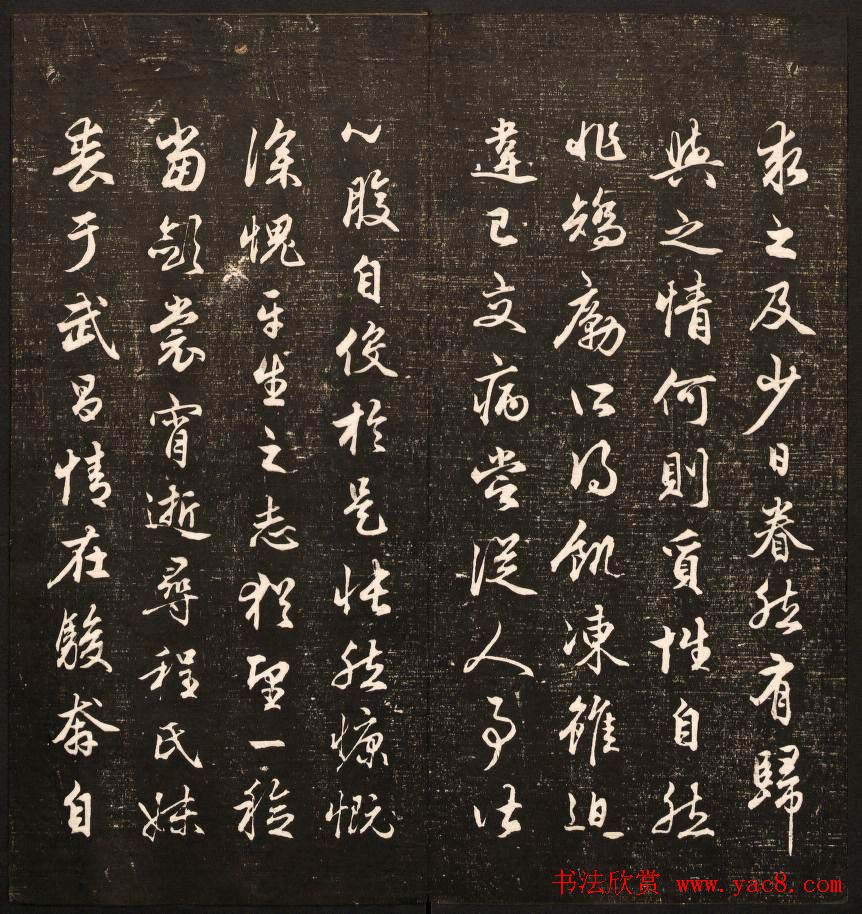 求之及少日眷然有歸
與之情何則質性自然
非矯勵所得飢凍雖迫
違已交病嘗從人事皆
口腹自役於是悵然慷慨
深愧平生之志猶望一稔
當斂裳宵逝尋程氏妹
喪于武昌情在駿奔自
书法欣赏 www.yac8.com